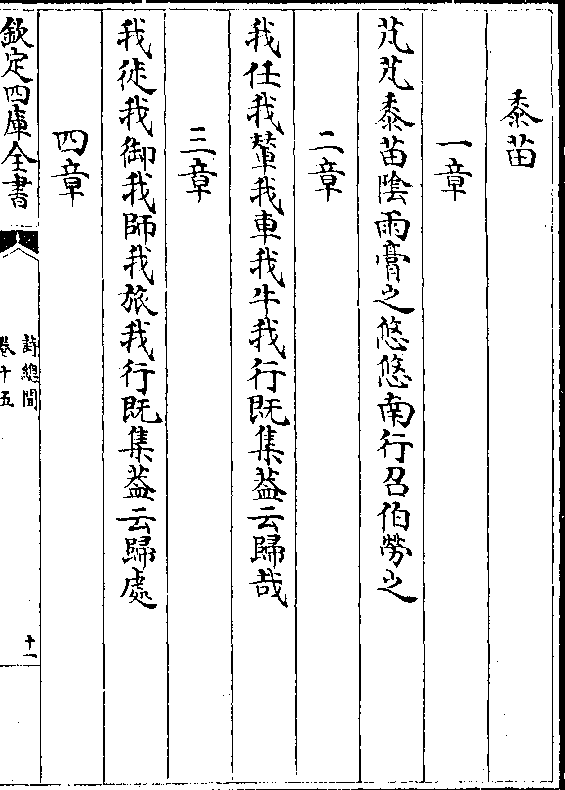 黍苗
一章
芃芃黍苗隂雨膏之悠悠南行召伯勞之
二章
我任我輦我車我牛我行既集葢云歸哉
三章
我徒我御我師我旅我行既集葢云歸處
四章
欽定四庫全書
詩總聞
卷十五
十一